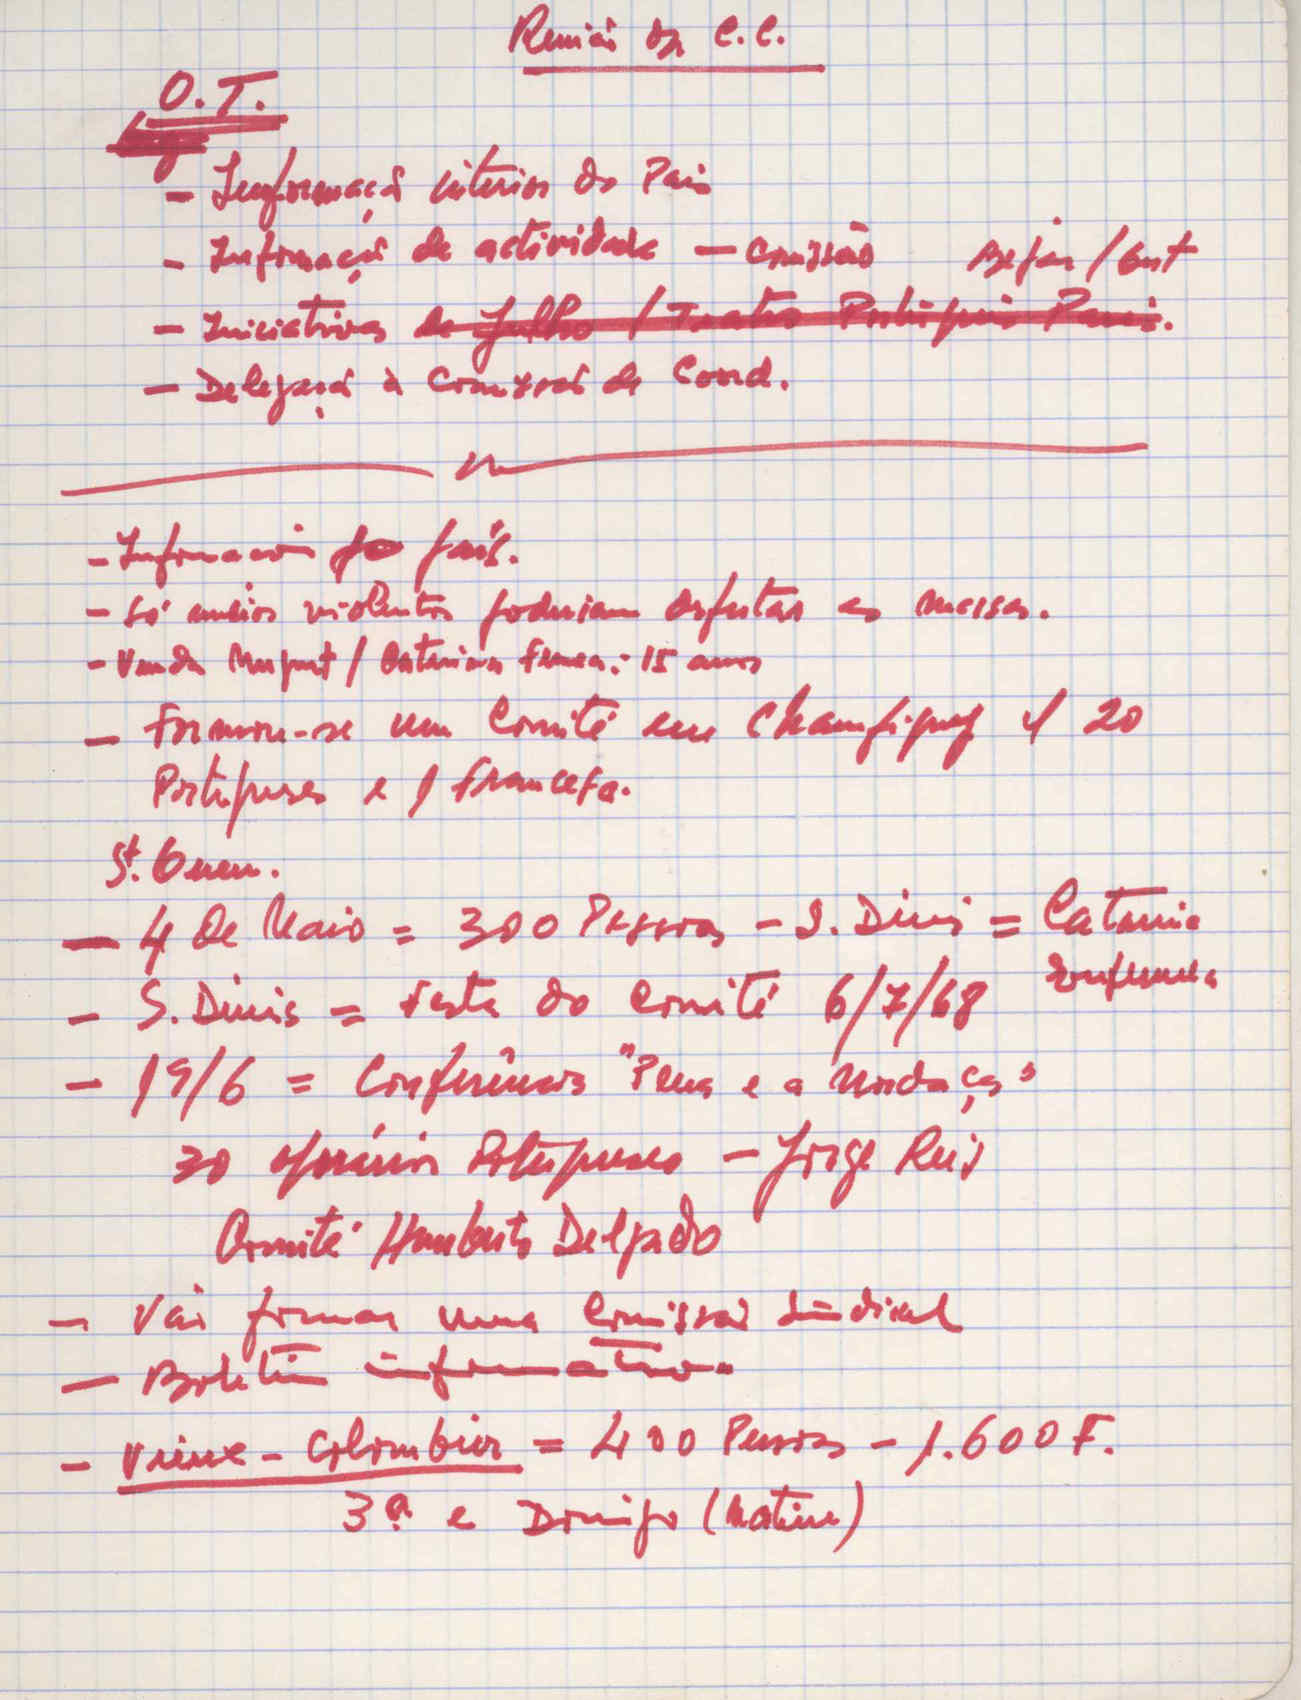 Reunião da C.C.
O.T.
- Informação interior do Pais
- Informação de actividade - comissão
- Iniciativas de Julho / Teatro Português Paris.
- Delegação à Comissão de Coord.
- Informação país.
- Só meios violentos poderiam as massas.
- Venda / Catarina 15 anos
- Formou-se um Comité em Champigny c/ 20
Portugueses e 1 francesa.
St. Ouen.
- 4 de Maio = 300 Pessoas - S. Dinis = Catarina
Eufemia
- S. Dinis = Festa do Comité 6/7/68
- 19/6 = Conferência "Pena e a Mordaça"
30 operários Portugueses - Jorge Reis
Comité Humberto Delgado
- Vai formar uma Comissão Sindical
- Boletim informativo
- Vieux-Colombier = 400 Pessoas - 1.600 F.
3ª e Domingo (Matine)